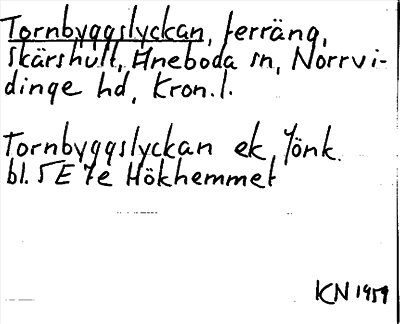 Tornbyggslyckan, terräng,
Skärshult, Aneboda sn, Norrvi-
dinge hd, Kron.l.
Tornbyggslyckan ek, Jönk.
bl. 5E 7e Hökhemmet
KN 1959